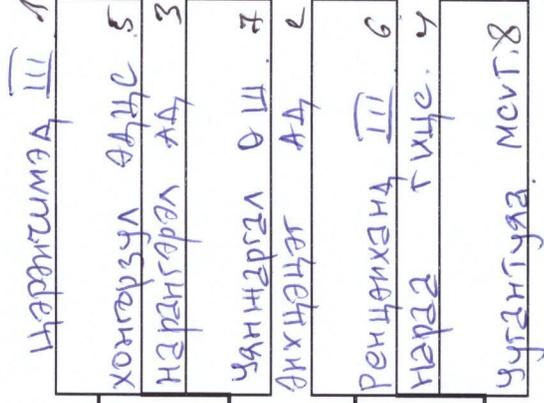 Цэрэнчимэд III 1
Хонгорзул ЭДЦС 5
Нарангэрэл АД 3
Уянжаргал ОШ. 7
Энхцэцэг АД 2
Ренцэнханд III 6
Нараа ТИЦС. 4
Уугантуяа МСУТ. 8